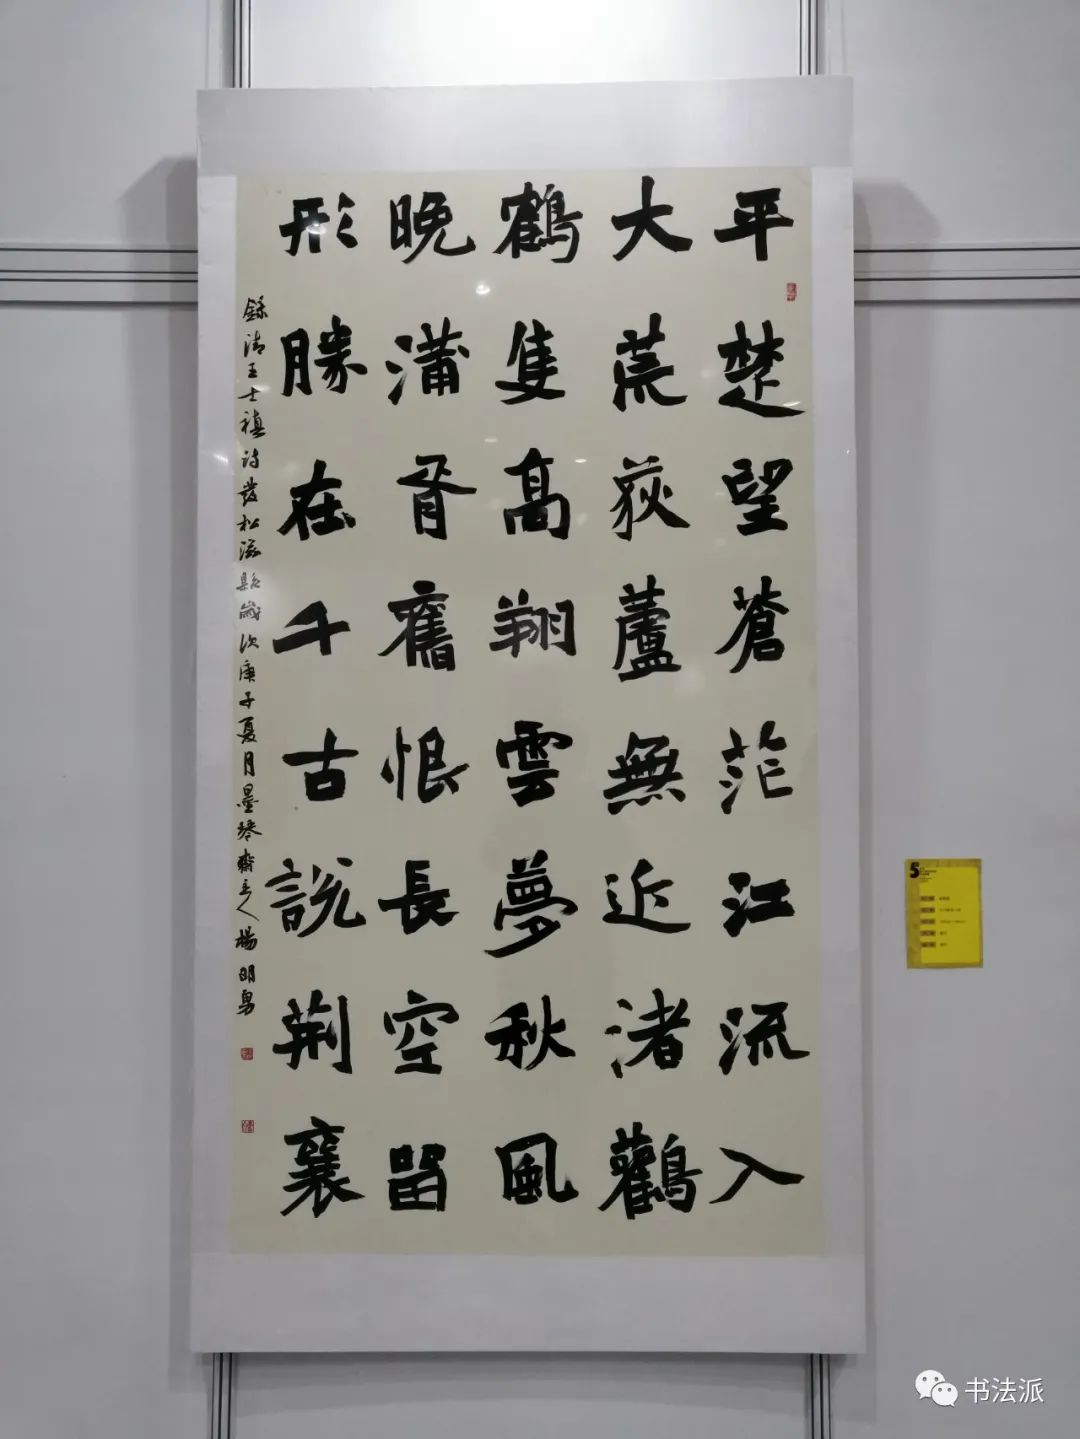 平楚望蒼茫江流入
大荒荻蘆無近渚鸛
鶴隻高翔雲夢秋風
晚蒲胥舊恨長空留
形勝在千古說荆襄
録清王士禛詩發松滋縣歲次庚子夏月墨琴齋主人楊明勇
5
书法派